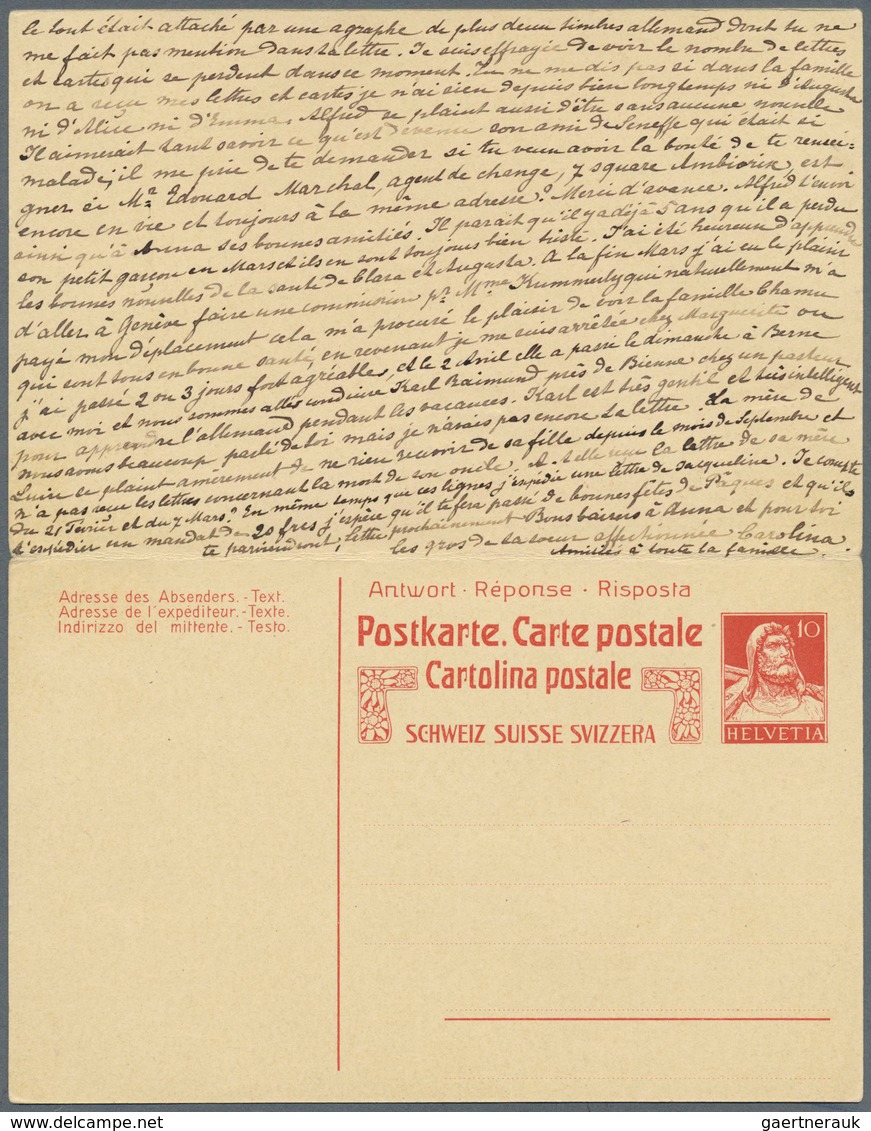 le tout était attaché par une agraphe de plus deux timbres allemand dont tu ne
me fait pas mention dans ta lettre. Je suis effrayée de voir le nombre de lettres
et cartes qui se perdent dans ce moment. Tu ne me dis pas si dans la famille
on a reçu mes lettres et cartes je n'ai rien depuis bien longtemps ni d'Augusta
ni d'Alice ni d'Emma. Alfred se plaint aussi d'être sans aucune nouvelle
Il aimerait tant savoir ce qu'est devenu son ami de Seneffe qui était si
malade, il me prie de te demander si tu veux avoir la bonté de te rensei=
gner si Mr. Edouard Marchal, agent de change, 7 square Ambiorix, est
encore en vie et toujours à la même adresse? Merci d'avance. Alfred t'envoi
ainsi qu'à Anna ses bonnes amitiés. Il parait qu'il y a déjà 5 ans qu'il a perdu
son petit garçon en Mars et ils en sont toujours bien triste. J'ai été heureux d'apprendre
les bonnes nouvelles de la santé de Clara et Augusta. A la fin Mars j'ai eu le plaisir
d'aller à Genève faire une commission pr. Mme Kummerly qui naturellement m'a
payé mon déplacement cela m'a procuré le plaisir de voir la famille Chamu
qui sont tous en bonne santé, en revenant je me suis arrêtée chez Marguerite ou
j'ai passé 2 ou 3 jours fort agréables, et le 2 Avril elle a passé le dimanche à Berne
avec moi et nous sommes allés conduire Karl Raimund près de Bienne chez un pasteur
pour apprendre l'allemand pendant les vacances. Karl est très gentil et très intelligent
nous avons beaucoup parlé de toi mais je n'avais pas encore ta lettre. La mère de
Luise se plaint amèrement de ne rien recevoir de sa fille depuis le mois de Septembre et
n'a pas reçu les lettres concernant la mort de son oncle. A-t-elle reçu la lettre de sa mère
du 21 Février et du 7 Mars? En même temps que ces lignes j'expédie une lettre de Jacqueline. Je compte
t'expédier un mandat de 20 frcs j'espère qu'il te fera passé de bonnes fêtes de Pâques et qu'ils
te parviendront, lettre prochainement Bons baisers à Anna et pour toi
les gros de ta soeur affectionnée Carolina
Amitiés à toute la famille
Adresse des Absenders. - Text.
Adresse de l'expéditeur. - Texte.
Indirizzo del mittente. - Testo.
Antwort · Réponse · Risposta
Postkarte. Carte postale
Cartolina postale
SCHWEIZ SUISSE SVIZZERA
10
HELVETIA
gaertnerauk